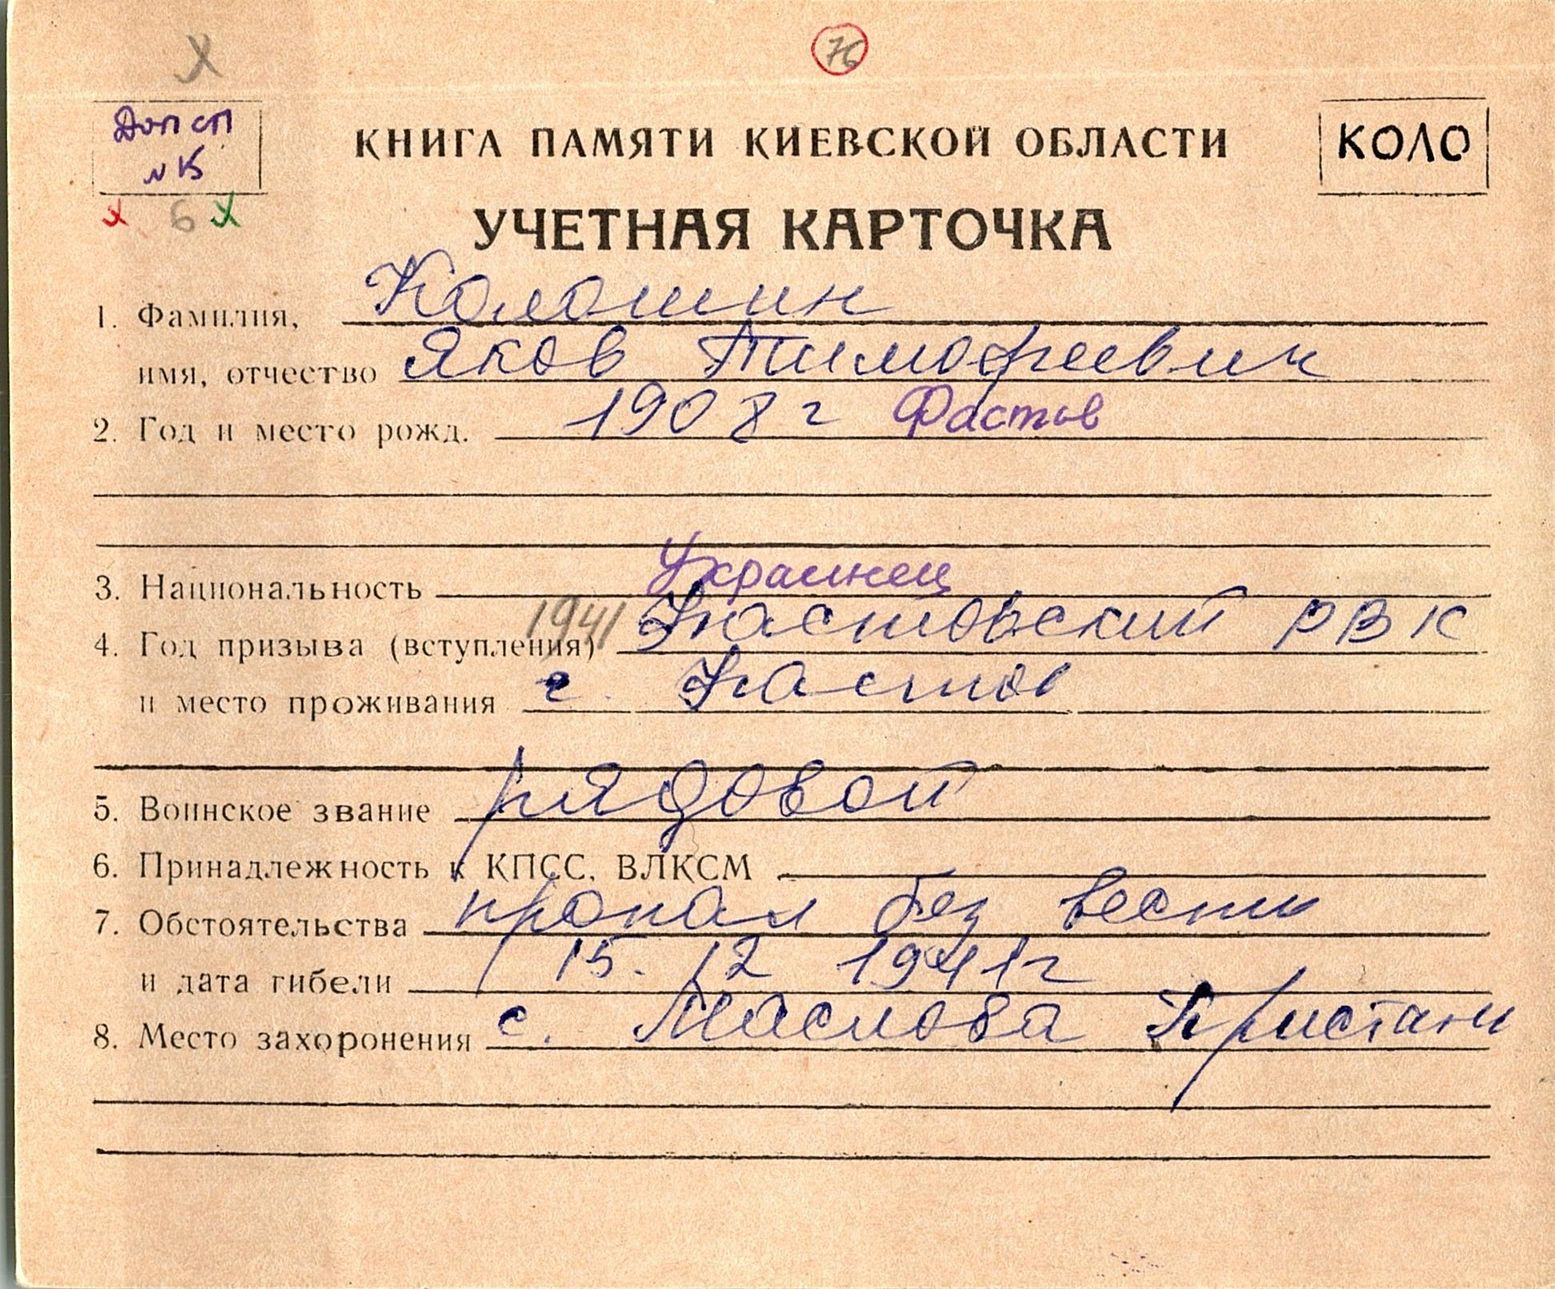 Х
76
Доп сп
№ 15
КНИГА ПАМЯТИ КИЕВСКОЙ ОБЛАСТИ
КОЛО
х 6 х
УЧЕТНАЯ КАРТОЧКА
1. Фамилия, Колошин
имя, отчество Яков Тимофеевич
2. Год и место рожд. 1908 г Фастов
3. Национальность Украинец
4. Год призыва (вступления) 1941 Фастовский РВК
и место проживания г. Фастов
5. Воинское звание рядовой
6. Принадлежность к КПСС, ВЛКСМ
7. Обстоятельства пропал без вести
и дата гибели 15. 12 1941 г
8. Место захоронения с. Маслова Пристань